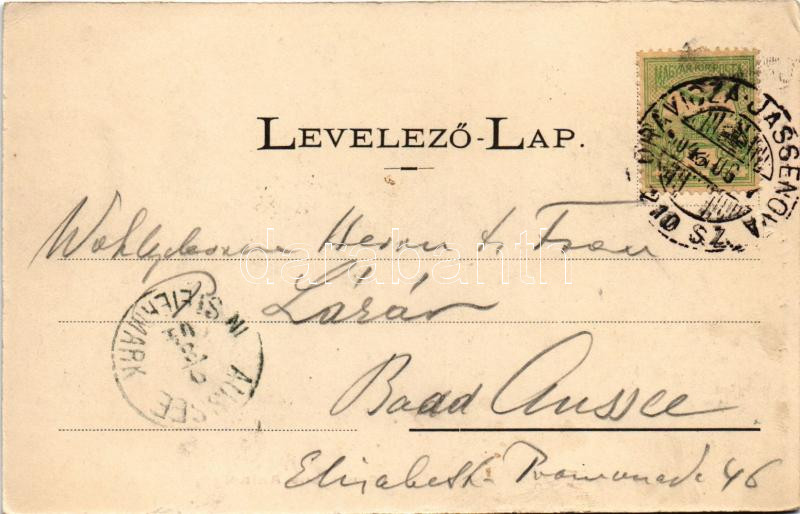 MAGYAR KIR. POSTA
ORAVICZA-JASSENOVA
210 SZ.
LEVELEZŐ-LAP.
Herrn & Frau
darabanth
Lázár
AUSSEE IN STEIERMARK
Baad Aussee
Elisabeth-Promenade 46